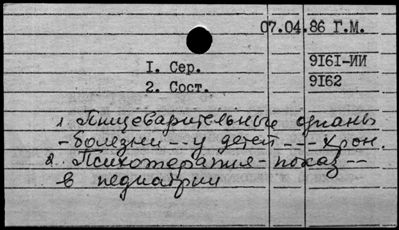 07.04.86 Г.М.
1. Сер. 9I6I-ИИ
2. Сост. 9I62
1 Пищеварительные органы
- болезни -- у детей --- хрон.
2. Психотерапия - показ --
в педиатрии